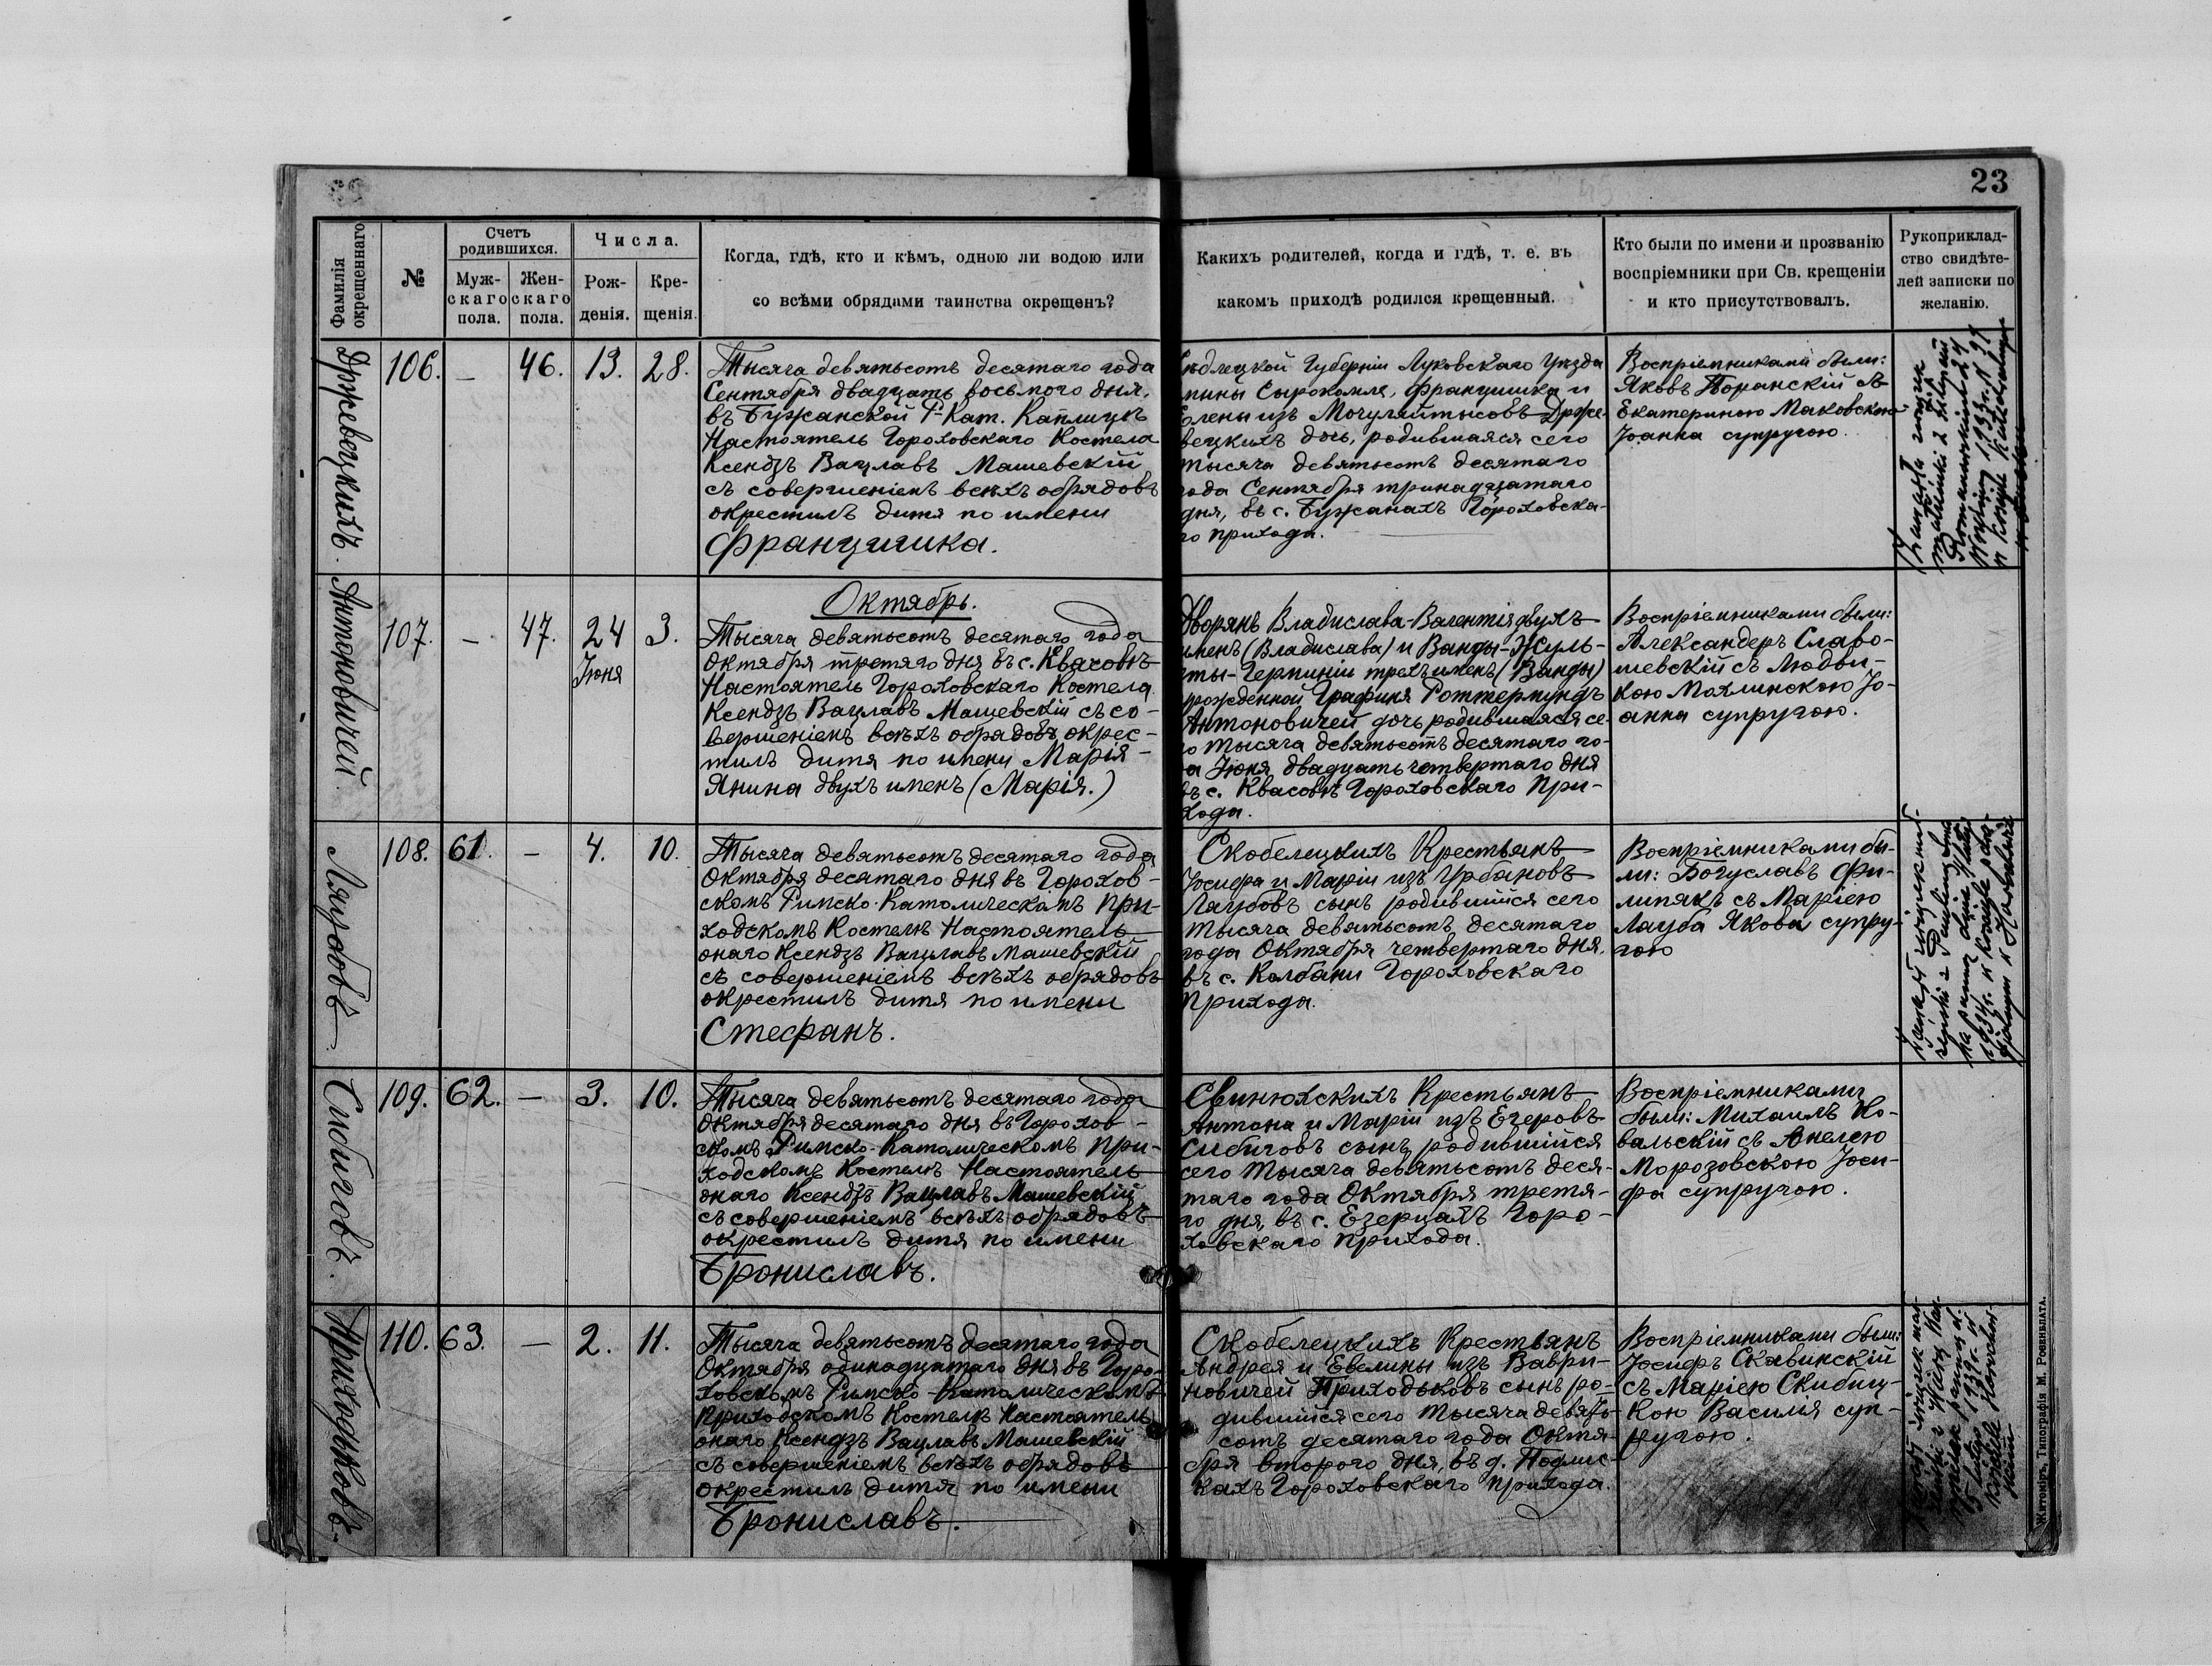 23
Фамилія окрещеннаго
№
Счетъ родившихся.
Муж-
скаго
пола.
Жен-
скаго
пола.
Числа.
Рож-
денія.
Кре-
щенія.
Когда, гдѣ, кто и кѣмъ, одною ли водою или
со всѣми обрядами таинства окрещенъ?
Какихъ родителей, когда и гдѣ, т. е. въ
какомъ приходѣ родился крещенный.
Кто были по имени и прозванію
воспріемники при Св. крещеніи
и кто присутствовалъ.
Рукоприклад-
ство свидѣте-
лей записки по
желанію.
106. – 46. 13. 28.
Тысяча девятьсотъ десятаго года
Сентября двадцать восьмого дня,
въ Бужанской Р-Кат. Каплицѣ
Настоятель Гороховскаго Костела
Ксендзъ Вацлавъ Машевскій
съ совершеніемъ всѣхъ обрядовъ
окрестилъ дитя по имени
Францишка.
Губерніи Луковскаго Уѣзда
Сырокомля, Францишка и
изъ Мочуляйтысовъ Држе-
вецкихъ дочь, родившаяся сего
тысяча девятьсотъ десятаго
года Сентября тринадцатаго
дня, въ с. Бужанахъ Гороховска-
го прихода.
Воспріемниками были:
Яковъ Поранскій съ
Екатериною Маковскою
Іоанна супругою.
Антоновичей.
107. – 47. 24 Іюня 3.
Октябрь.
Тысяча девятьсотъ десятаго года
Октября третяго дня въ с. Квасовѣ
Настоятель Гороховскаго Костела
Ксендзъ Вацлавъ Машевскій съ со-
вершеніемъ всѣхъ обрядовъ окрес-
тилъ дитя по имени Марія-
Янина двухъ именъ (Марія.)
Дворянъ Владислава-Валентія двухъ
именъ (Владислава) и Ванды-Жуль-
еты-Герминіи трехъ именъ (Ванды)
урожденной Графиня Роттермундъ
Антоновичей дочь родившаяся се-
го тысяча девятьсотъ десятаго го-
да Іюня двадцать четвертаго дня
въ с. Квасовѣ Гороховскаго При-
хода.
Воспріемниками были:
Александеръ Славо-
шевскій съ Людви-
кою Махлинскою Іо-
анна супругою.
Лаубовъ
108. 61. – 4. 10.
Тысяча девятьсотъ десятаго года
Октября десятаго дня въ Горохов-
скомъ Римско-Католическомъ При-
ходскомъ Костелѣ Настоятель
онаго Ксендзъ Вацлавъ Машевскій
съ совершеніемъ всѣхъ обрядовъ
окрестилъ дитя по имени
Стефанъ.
Скобелецкихъ Крестьянъ
Іосифа и Маріи изъ Урбановъ
Лаубовъ сынъ родившійся сего
тысяча девятьсотъ десятаго
года Октября четвертаго дня,
въ с. Колбани Гороховскаго
прихода.
Воспріемниками бы-
ли: Богуславъ Фи-
липякъ съ Маріею
Лауба Якова супру-
гою
109. 62. – 3. 10.
Тысяча девятьсотъ десятаго года
Октября десятаго дня въ Горохов-
скомъ Римско-Католическомъ При-
ходскомъ Костелѣ Настоятель
онаго Ксендзъ Вацлавъ Машевскій
съ совершеніемъ всѣхъ обрядовъ
окрестилъ дитя по имени
Брониславъ.
Свинюхскихъ Крестьянъ
Антона и Маріи изъ Егеровъ
сынъ родившійся
сего тысяча девятьсотъ деся-
таго года Октября третя-
го дня, въ с. Езерцахъ Горо-
ховскаго прихода.
Воспріемниками
были: Михаилъ Ко-
вальскій съ Анелею
Морозовскою Іоси-
фа супругою.
Приходьковъ
110. 63. – 2. 11.
Тысяча девятьсотъ десятаго года
Октября одинадцатаго дня въ Горо-
ховскомъ Римско-Католическомъ
Приходскомъ Костелѣ Настоятель
онаго Ксендзъ Вацлавъ Машевскій
съ совершеніемъ всѣхъ обрядовъ
окрестилъ дитя по имени
Брониславъ.
Скобелецкихъ Крестьянъ
Андрея и Евелины изъ Ваври-
новичей Приходьковъ сынъ ро-
дившійся сего тысяча девять-
сотъ десятаго года Октя-
бря второго дня, въ д. Подлис-
кахъ Гороховскаго прихода.
Воспріемниками были:
Іосифъ Скавинскій
съ Маріею Скибиц-
кою Василія суп-
ругою.
Житоміръ, Типографія М. Ровенблата.